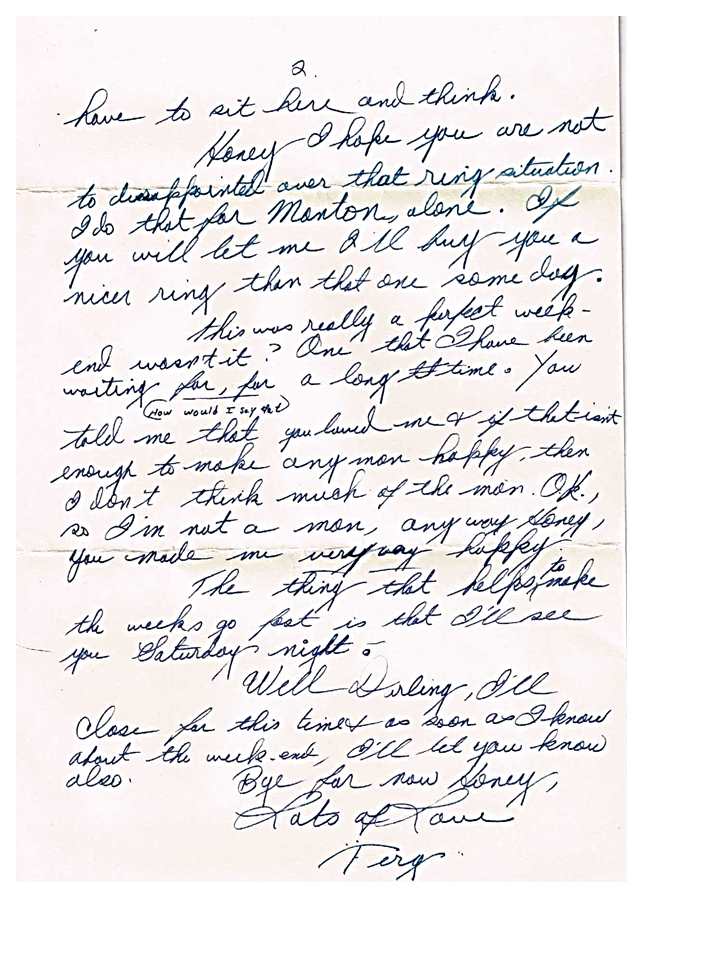 2.
have to sit here and think.
Honey I hope you are not
to dissappointed over that ring situation.
I do that for Monton, alone. If
you will let me I'll buy you a
nicer ring than that one some day.
This was really a perfect week-
end wasn't it? One that I have been
waiting for, for a long time. You
(How would I say that)
told me that you loved me & if that isn't
enough to make any man happy, then
I don't think much of the man. O.K.,
so I'm not a man, any way Honey,
you made me very, very happy.
The thing that helps to make
the weeks go fast is that I'll see
you Saturday night.
Well Darling, I'll
Close for this time & as soon as I know
about the week-end, I'll let you know
also. Bye for now Honey,
Lots of Love
Ferg